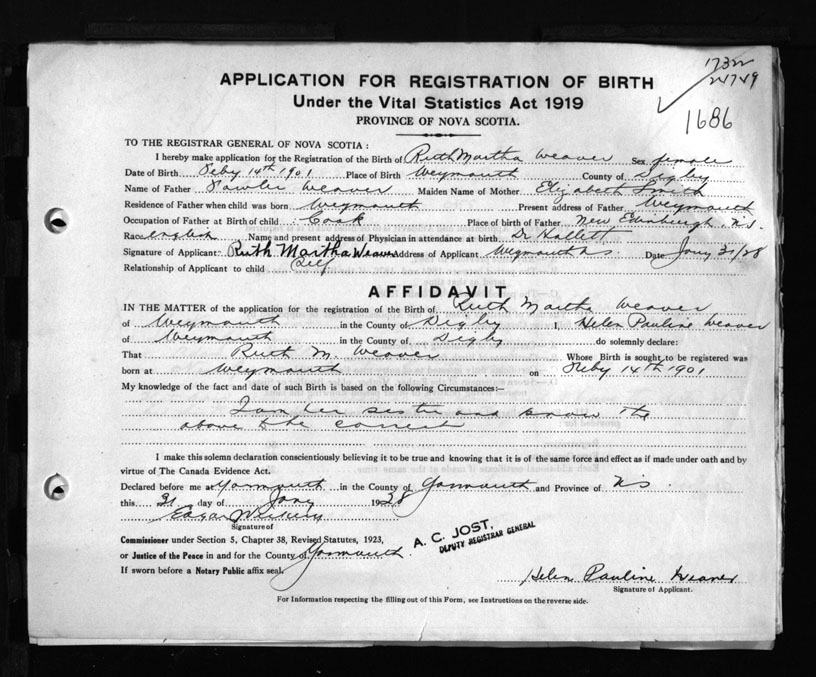 1732
24749
1686
APPLICATION FOR REGISTRATION OF BIRTH
Under the Vital Statistics Act 1919
PROVINCE OF NOVA SCOTIA.
TO THE REGISTRAR GENERAL OF NOVA SCOTIA :
I hereby make application for the Registration of the Birth of Ruth Martha Weaver Sex female
Date of Birth Feby 14th 1901 Place of Birth Weymouth County of Digby
Name of Father Weaver Maiden Name of Mother Elizabeth Smith
Residence of Father when child was born Weymouth Present address of Father Weymouth
Occupation of Father at Birth of child Cook Place of birth of Father New Edinburgh, N.S.
Race english Name and present address of Physician in attendance at birth Dr Hallett
Signature of Applicant: Ruth Martha Weaver Address of Applicant Weymouth N.S. Date Jany 31/28
Relationship of Applicant to child Self
AFFIDAVIT
IN THE MATTER of the application for the registration of the Birth of Ruth Martha Weaver
of Weymouth in the County of Digby I, Helen Pauline Weaver
of Weymouth in the County of Digby do solemnly declare:
That Ruth M. Weaver Whose Birth is sought to be registered was
born at Weymouth on Feby 14th 1901
My knowledge of the fact and date of such Birth is based on the following Circumstances:—
I am her sister and know the
above to be correct
I make this solemn declaration conscientiously believing it to be true and knowing that it is of the same force and effect as if made under oath and by
virtue of The Canada Evidence Act.
Declared before me at Yarmouth in the County of Yarmouth and Province of N.S.
this 31 day of Jany 1928
Edgar
Signature of
Commissioner under Section 5, Chapter 38, Revised Statutes, 1923,
or Justice of the Peace in and for the County of Yarmouth.
If sworn before a Notary Public affix seal.
A. C. JOST,
DEPUTY REGISTRAR GENERAL
Helen Pauline Weaver
Signature of Applicant.
For Information respecting the filling out of this Form, see Instructions on the reverse side.